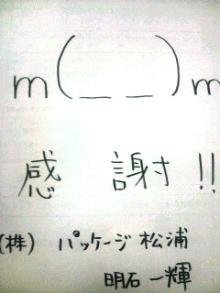 m(＿ ＿)m
感 謝!!
(株) パッケージ松浦
明石 一輝